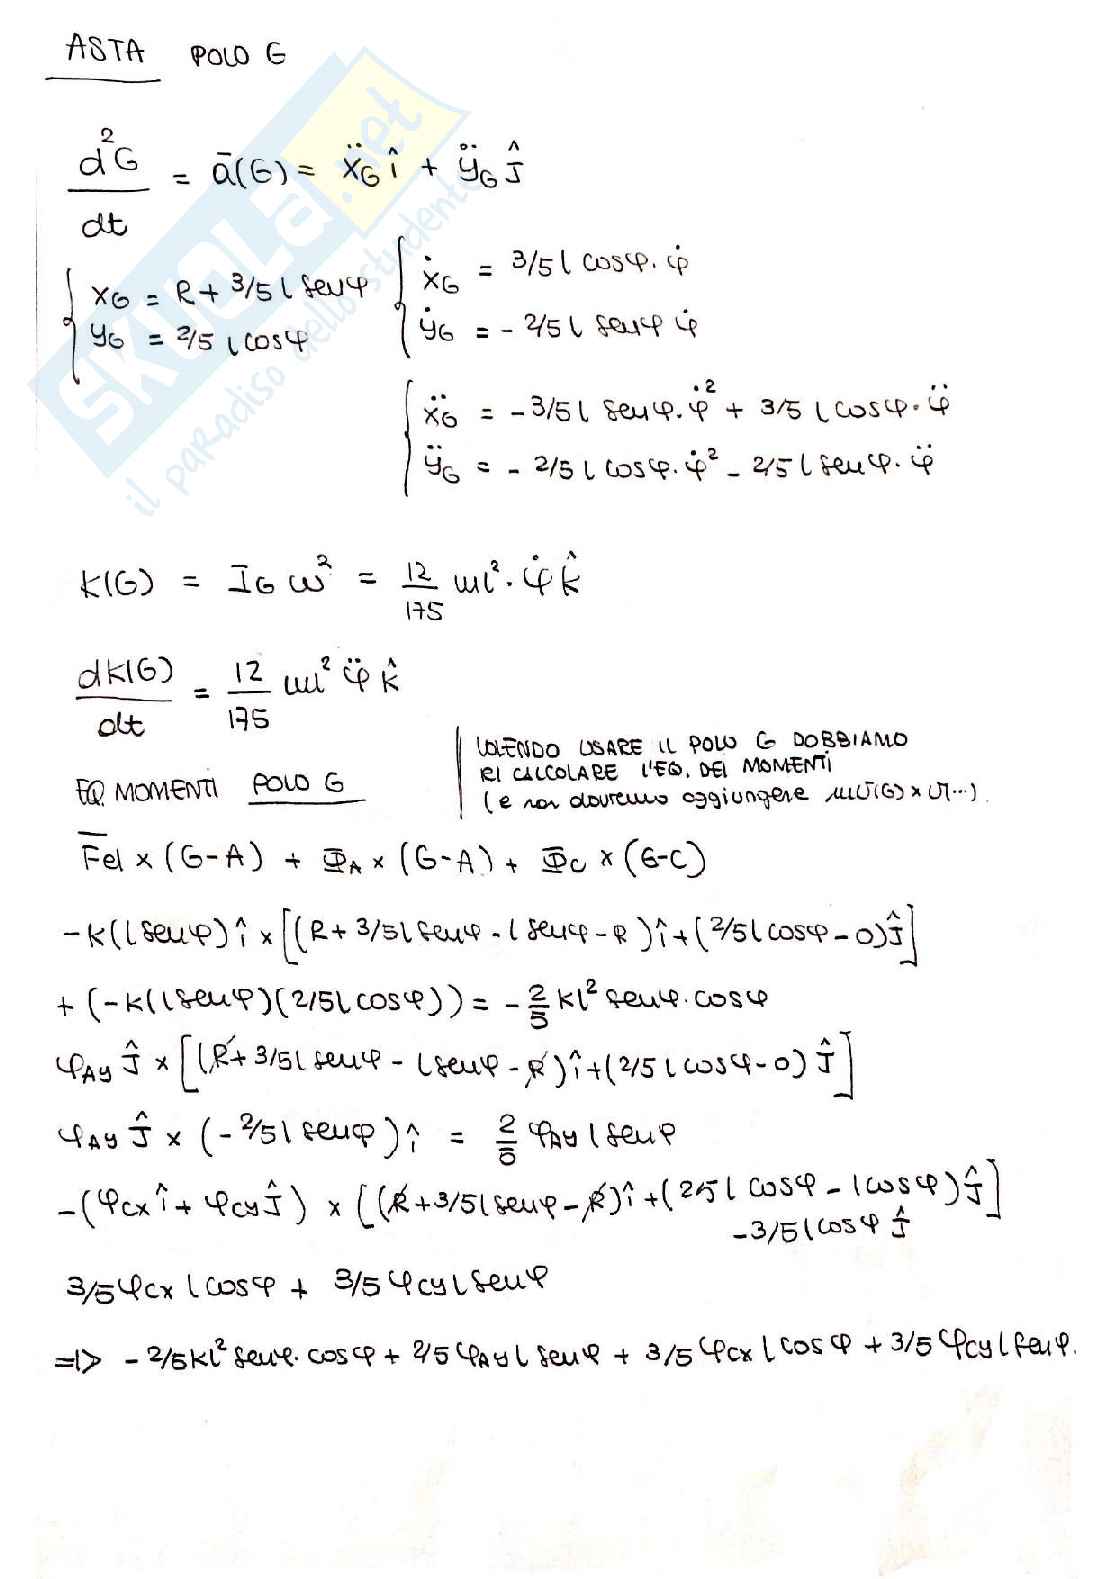 ASTA POLO G
d²G/dt = ā(G) = ẍG î + ÿG ĵ
{ xG = R + 3/5 l senφ
yG = 2/5 l cosφ
{ ẋG = 3/5 l cosφ · φ̇
ẏG = - 2/5 l senφ φ̇
{ ẍG = - 3/5 l senφ · φ̇² + 3/5 l cosφ · φ̈
ÿG = - 2/5 l cosφ · φ̇² - 2/5 l senφ · φ̈
K(G) = IG ω² = 12/175 ml² · φ̇ k̂
dK(G)/dt = 12/175 ml² φ̈ k̂
VOLENDO USARE IL POLO G DOBBIAMO
RICALCOLARE L'EQ. DEI MOMENTI
(e non dovremo aggiungere m v̄(G) × v̄(...).
EQ. MOMENTI POLO G
F̄el × (G-A) + Φ̄A × (G-A) + Φ̄C × (G-C)
-k(l senφ) î × [(R + 3/5 l senφ - l senφ - R) î + (2/5 l cosφ - 0) ĵ]
+ (-k(l senφ)(2/5 l cosφ)) = - 2/5 kl² senφ · cosφ
φAy ĵ × [(R + 3/5 l senφ - l senφ - R) î + (2/5 l cosφ - 0) ĵ]
φAy ĵ × (- 2/5 l senφ) î = 2/5 φAy l senφ
-(φcx î + φcy ĵ) × [(R + 3/5 l senφ - R) î + (2/5 l cosφ - l cosφ) ĵ]
- 3/5 l cosφ ĵ
3/5 φcx l cosφ + 3/5 φcy l senφ
=|> - 2/5 kl² senφ · cosφ + 2/5 φAy l senφ + 3/5 φcx l cosφ + 3/5 φcy l senφ.
SKUOLA.net
il paradiso dello studente